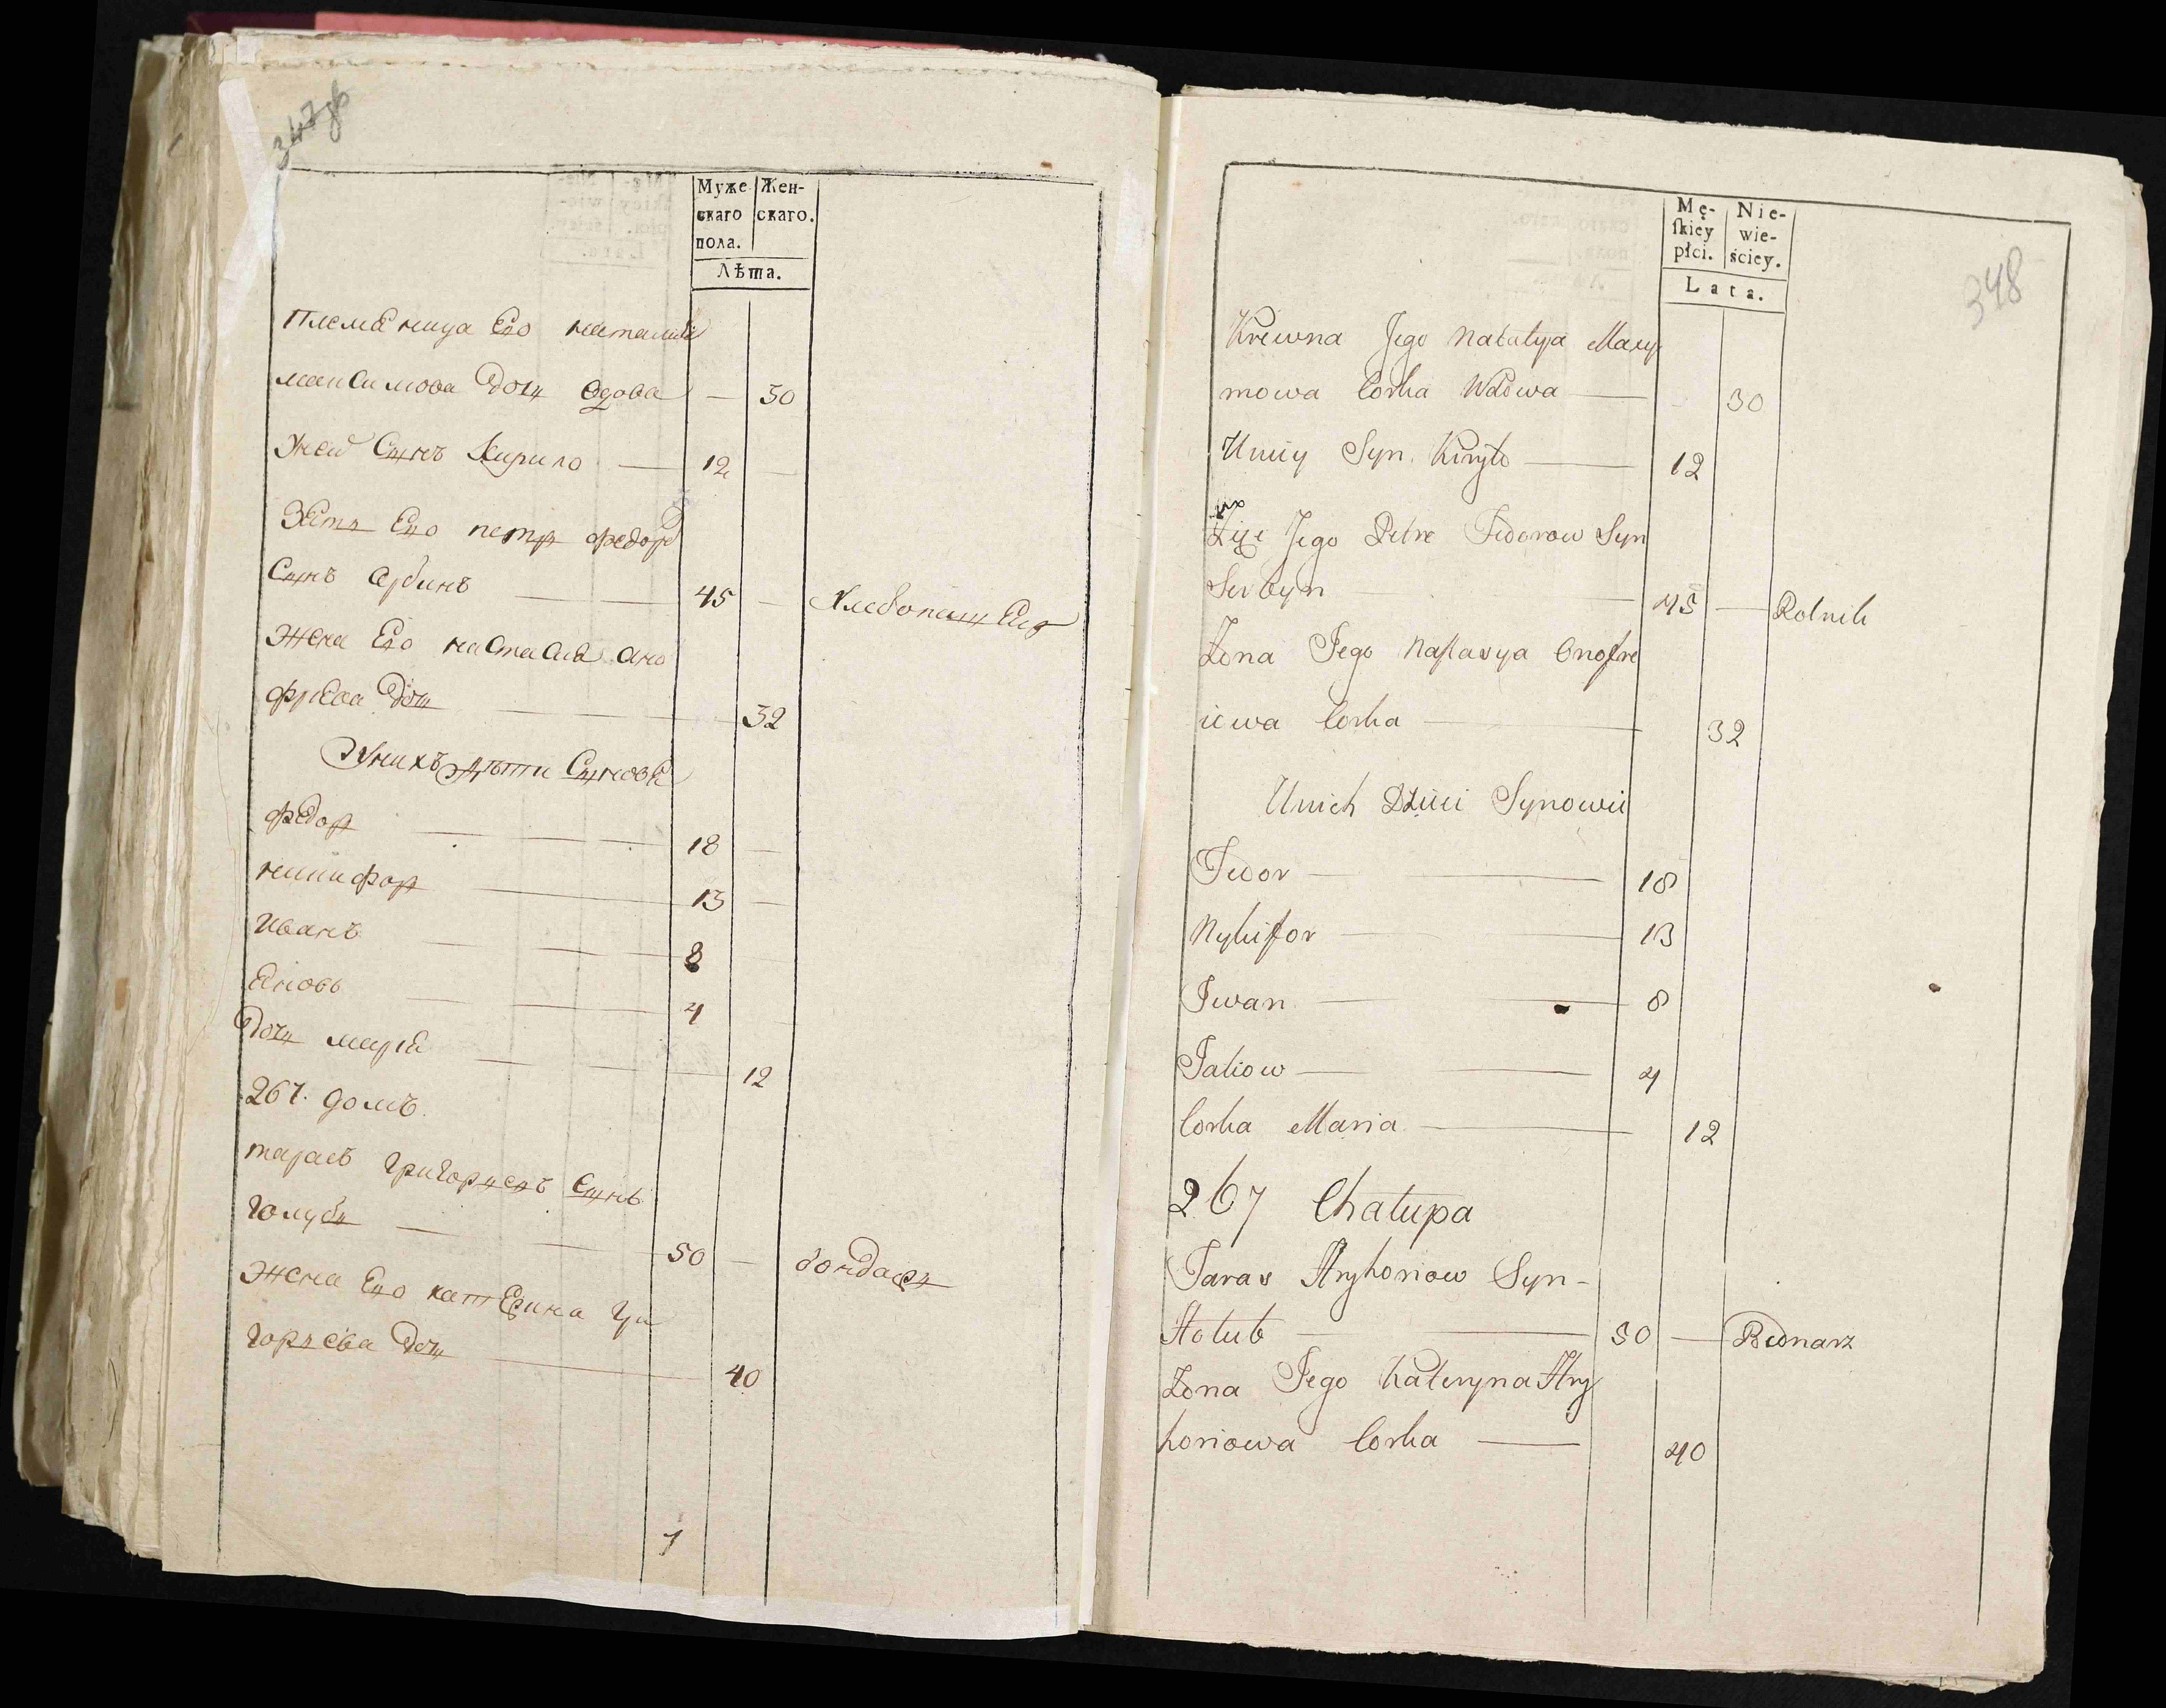 347об
Муже Жен-
скаго скаго.
пола.
Лѣта.
Племеница Его наталия
максимова дочь вдова — 30
Унеи Сынъ Кирило — 12 —
Зеть Его петр федоров
Сынъ Сербинъ — 45 — Хлебопашец
Жена Его настасия ано
фриева дочь — 32
Уних дѣти Синове
федор — 18 —
никифор — 13 —
Иванъ — 8
Яковъ — 4
дочь мария — 12
267. домъ.
тарасъ григорьевъ Сынъ
голубь — 50 — бондарь
Жена Его катерина гри
горьева дочь — 40
7
348
Mę- Nie-
skiey wie-
płci. ściey.
Lata.
Krewna Jego Natalyja Maxy
mowa Corka Wdowa — 30
Uniiy Syn Kiryło — 12
Zięć Jego Petre Fedorow Syn
Serbyn — 45 — Rolnik
Żona Jego Nastasya Onofre
iewa Corka — 32
Unich Dzieci Synowie
Fedor — 18
Nykifor — 13
Iwan — 8
Jakow — 4
Corka Maria — 12
267 Chałupa
Taras Hryhoriow Syn -
Hołub — 50 — Bednarz
Żona Jego Kateryna Hry
horiowa Corka — 40